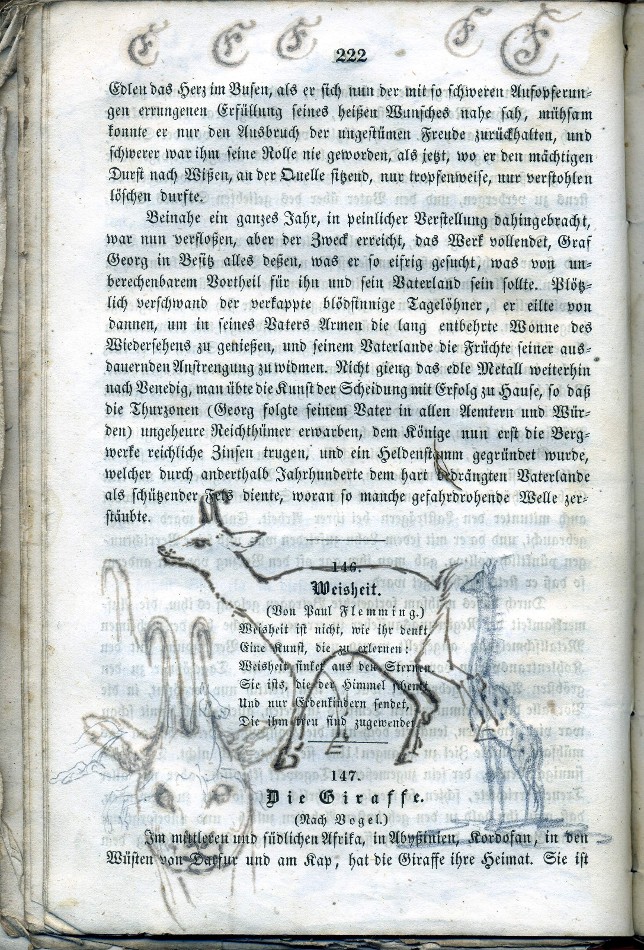 F F F F F
222
Edlen das Herz im Busen, als er sich nun der mit so schweren Aufopferun-
gen errungenen Erfüllung seines heißen Wunsches nahe sah, mühsam
konnte er nur den Ausbruch der ungestümen Freude zurückhalten, und
schwerer war ihm seine Rolle nie geworden, als jetzt, wo er den mächtigen
Durst nach Wißen, an der Quelle sitzend, nur tropfenweise, nur verstohlen
löschen durfte.
Beinahe ein ganzes Jahr, in peinlicher Verstellung dahingebracht,
war nun verfloßen, aber der Zweck erreicht, das Werk vollendet, Graf
Georg in Besitz alles deßen, was er so eifrig gesucht, was von un-
berechenbarem Vortheil für ihn und sein Vaterland sein sollte. Plötz-
lich verschwand der verkappte blödsinnige Tagelöhner, er eilte von
dannen, um in seines Vaters Armen die lang entbehrte Wonne des
Wiedersehens zu genießen, und seinem Vaterlande die Früchte seiner aus-
dauernden Anstrengung zu widmen. Nicht gieng das edle Metall weiterhin
nach Venedig, man übte die Kunst der Scheidung mit Erfolg zu Hause, so daß
die Thurzonen (Georg folgte seinem Vater in allen Aemtern und Wür-
den) ungeheure Reichthümer erwarben, dem Könige nun erst die Berg-
werke reichliche Zinsen trugen, und ein Heldenstamm gegründet wurde,
welcher durch anderthalb Jahrhunderte dem hart bedrängten Vaterlande
als schützender Fels diente, woran so manche gefahrdrohende Welle zer-
stäubte.
146.
Weisheit.
(Von Paul Flemming.)
Weisheit ist nicht, wie ihr denkt,
Eine Kunst, die zu erlernen!
Weisheit sinket aus den Sternen,
Sie ists, die der Himmel schenkt
Und nur Erdenkindern sendet,
Die ihm treu sind zugewendet.
147.
Die Giraffe.
(Nach Vogel.)
Im mittleren und südlichen Afrika, in Abyßinien, Kordofan, in den
Wüsten von Darfur und am Kap, hat die Giraffe ihre Heimat. Sie ist